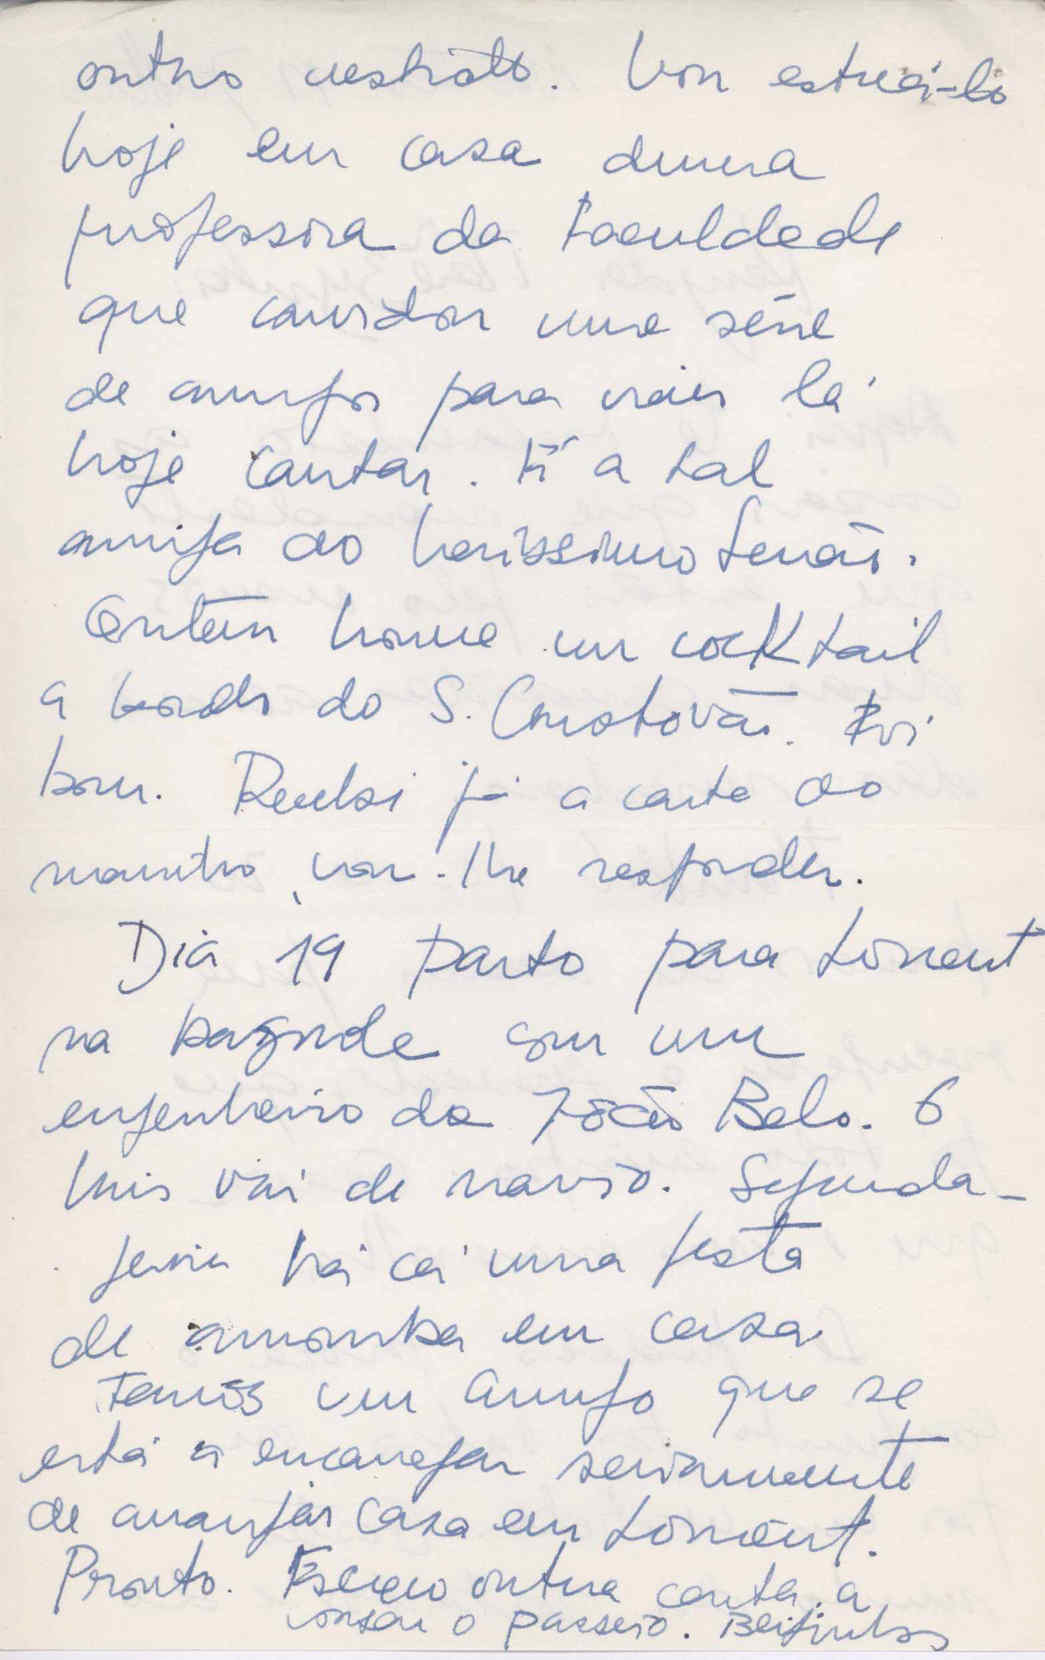 outro vestido. Vou estreá-lo
hoje em casa duma
professora da Faculdade
que convidou uma série
de amigos para irem lá
hoje cantar. É a tal
amiga do Veríssimo Serrão.
Ontem houve um cocktail
a bordo do S. Cristovão. Foi
bom. Recebi já a carta do
vou-lhe responder.
Dia 19 parto para Lorient
na bagnole com um
engenheiro da João Belo. O
Luis vai de navio. Segunda-
feira há cá uma festa
de arromba em casa
Temos um amigo que se
está a encarregar seriamente
de arranjar casa em Lorient.
Pronto. Escrevo outra carta a
contar o passeio. Beijinhos